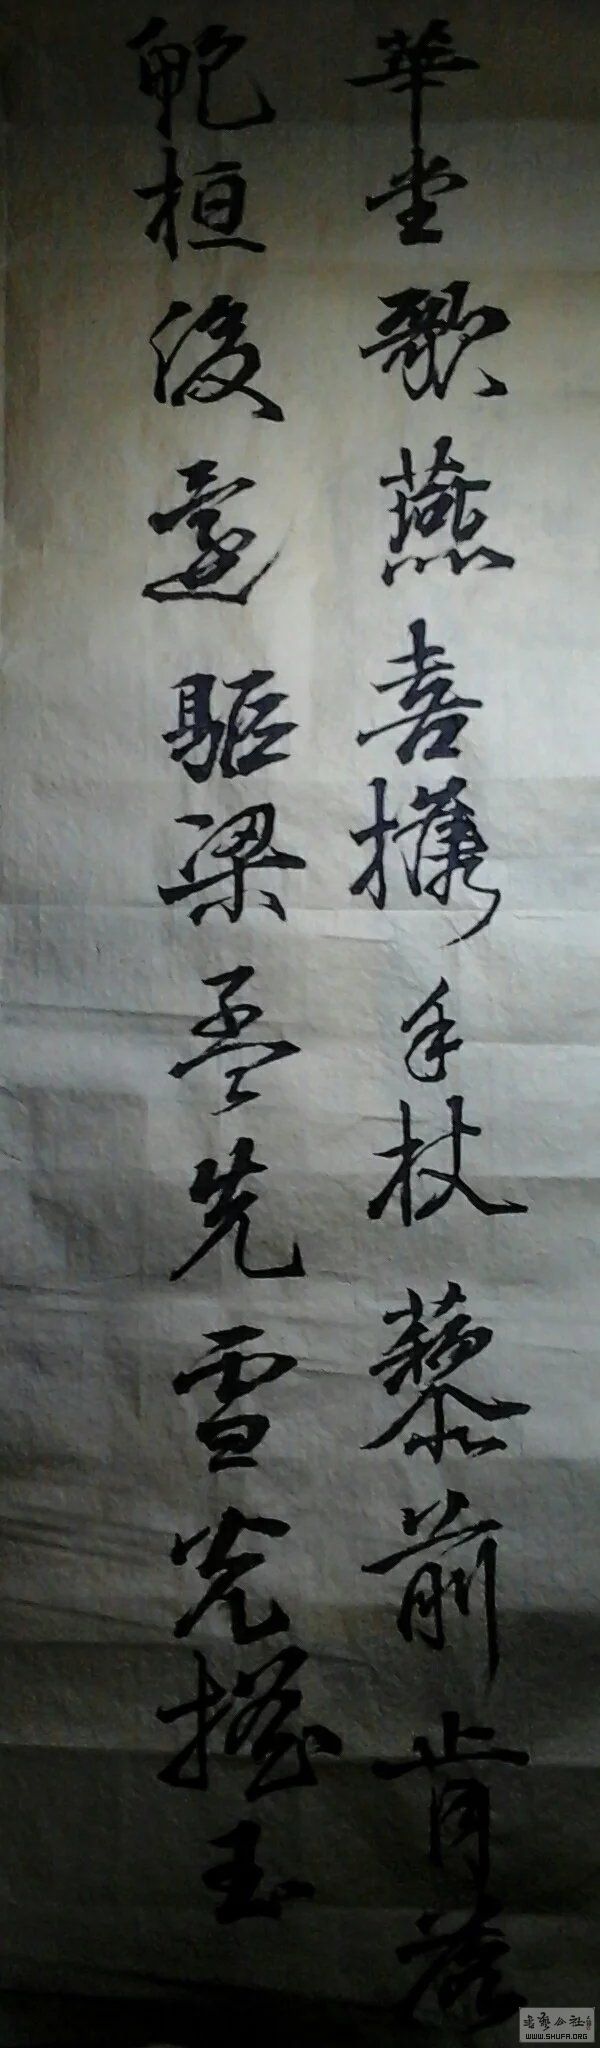 華堂歌燕喜攜手杖藜前肯落
鮑桓後還驅梁孟先雪光搖玉
書藝公社
WWW.SHUFA.ORG